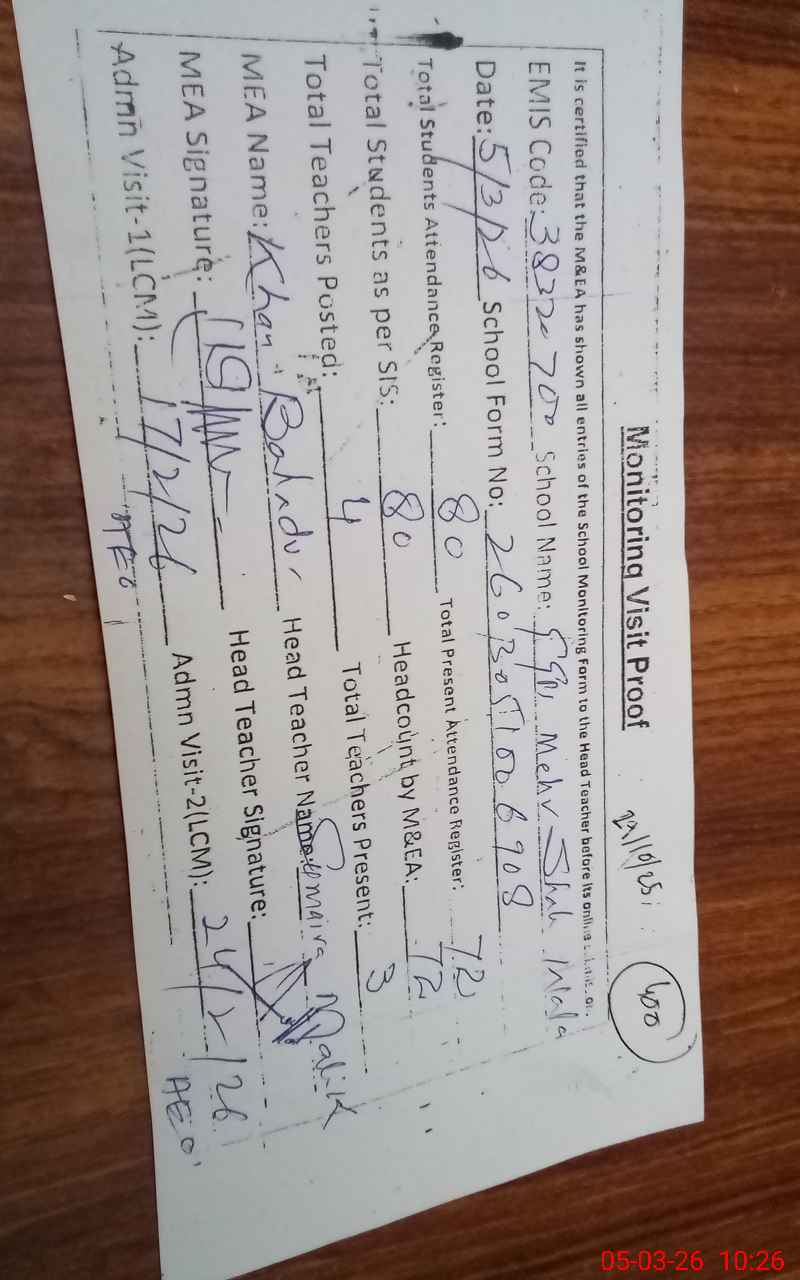 Monitoring Visit Proof
22/10/25
400
It is certified that the M&EA has shown all entries of the School Monitoring Form to the Head Teacher before its online
EMIS Code: School Name: Mehr Shah
Date: 5/3/26 School Form No:
Total Students Attendance Register: 80 Total Present Attendance Register: 72
Total Students as per SIS: 80 Headcount by M&EA: 72
Total Teachers Posted: 4 Total Teachers Present: 3
MEA Name: Khan Bahadur Head Teacher Name: Malik
MEA Signature: Head Teacher Signature:
Admn Visit-1(LCM): 17/2/26 Admn Visit-2(LCM): 24/2/26
AEO AEO
05-03-26 10:26